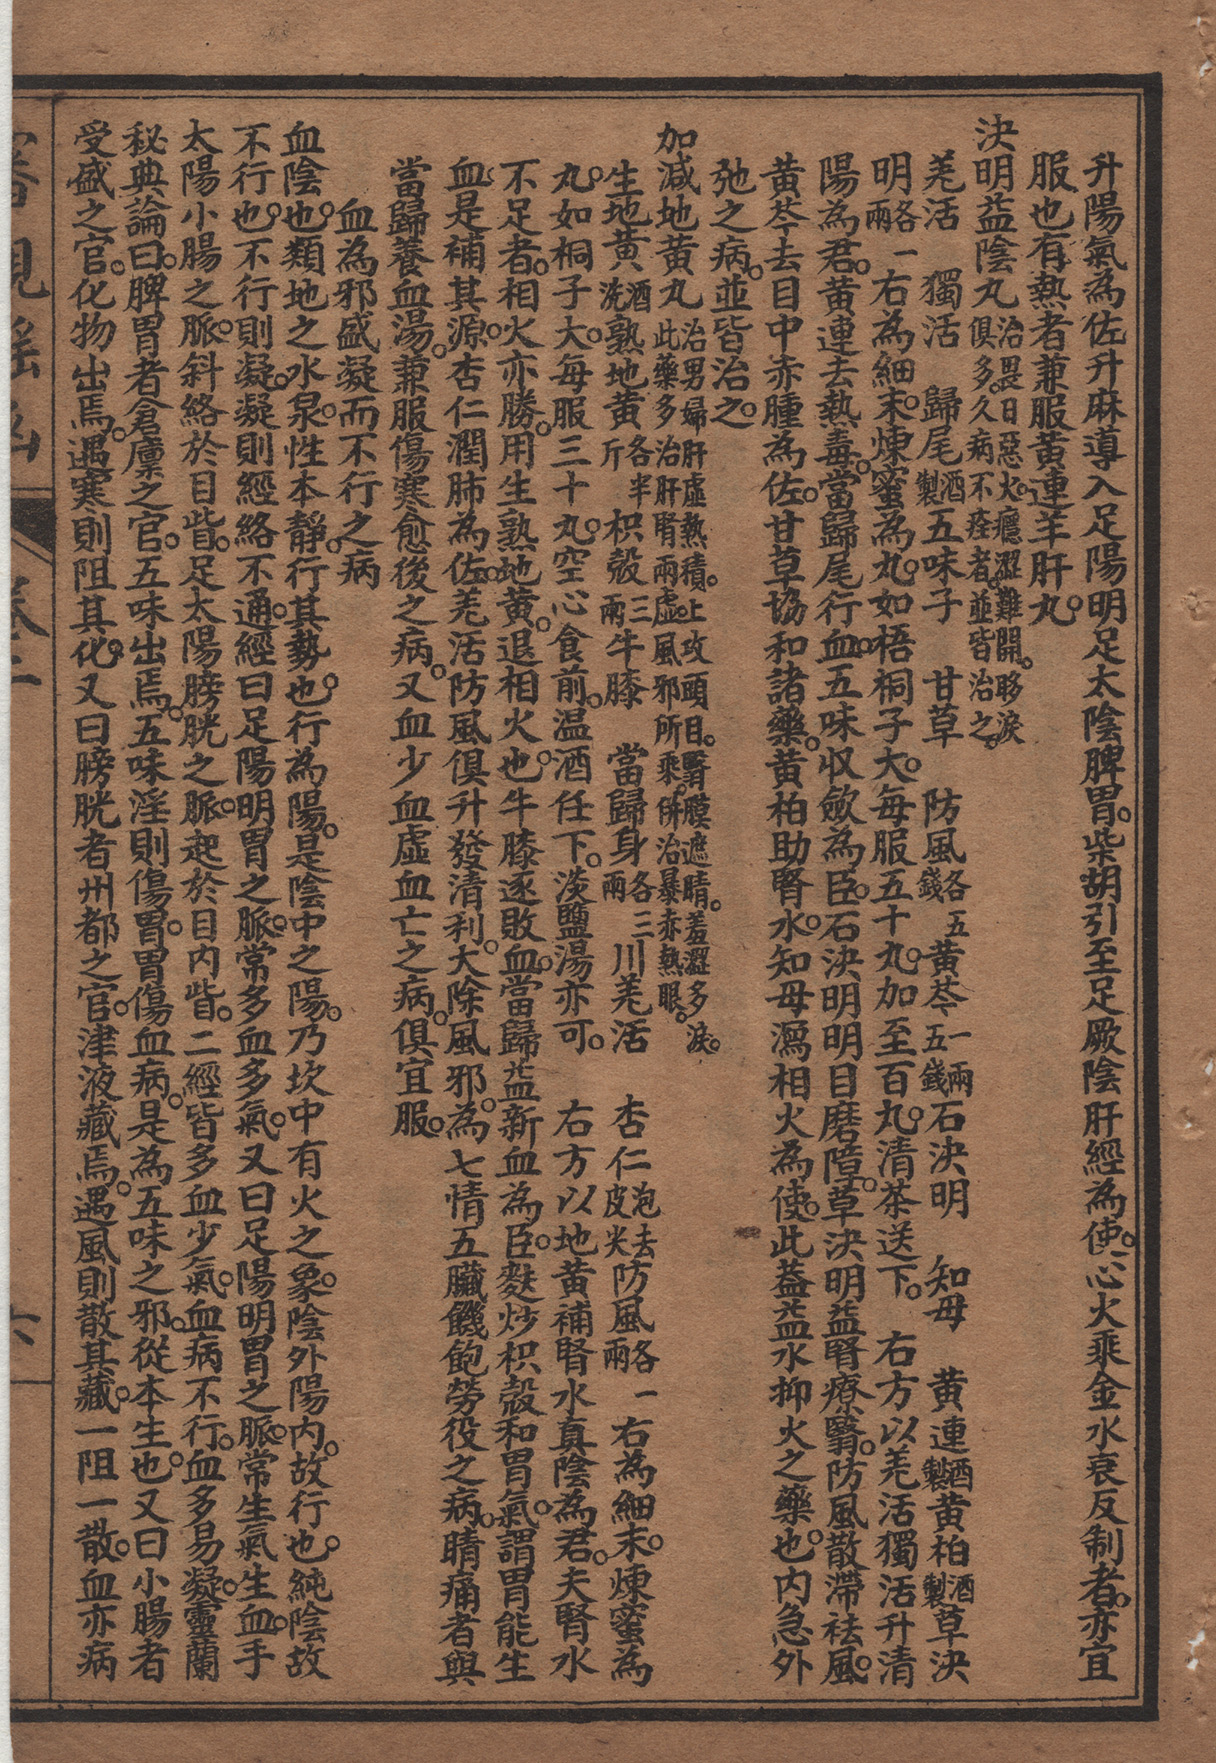 升陽氣為佐升麻導入足陽明足太陰脾胃。柴胡引至足厥陰肝經為使。心火乘金水衰反制者。亦宜
服也有熱者兼服黃連羊肝丸。
決明益陰丸治畏日惡火。癮澀難開。眵淚俱多久病不痊者。並皆治之。
羌活　獨活　歸尾酒製五味子　甘草　防風各五錢黃芩一兩五錢石決明　知母　黃連酒製黃柏酒製草決
明各一兩　右為細末。煉蜜為丸。如梧桐子大。每服五十丸。加至百丸。清茶送下。　右方以羌活獨活升清
陽為君。黃連去熱毒。當歸尾行血。五味收歛為臣。石決明明目磨障。草決明益腎療翳。防風散滯祛風。
黃芩去目中赤腫為佐。甘草協和諸藥。黃柏助腎水。知母瀉相火為使。此葢益水抑火之藥也。內急外
弛之病。並皆治之。
加減地黃丸治男婦肝虛熱積。上攻頭目。翳膜遮睛。羞澀多淚。此藥多治肝腎兩虛。風邪所乘。併治暴赤熱眼。
生地黃酒洗熟地黃各半斤枳殼三兩牛膝　當歸身各三兩川羌活　杏仁泡去皮尖防風各一兩　右為細末。煉蜜為
丸。如桐子大。每服三十丸。空心食前。温酒任下。淡鹽湯亦可。　右方以地黃補腎水真陰為君。夫腎水
不足者。相火亦勝。用生熟地黃。退相火也。牛膝逐敗血。當歸益新血為臣。麩炒枳殼和胃氣。謂胃能生
血。是補其源。杏仁潤肺為佐。羌活防風俱升發清利。大除風邪。為七情五臟饑飽勞役之病。睛痛者與
當歸養血湯。兼服傷寒愈後之病。又血少血虛血亡之病。俱宜服。
血為邪盛凝而不行之病
血陰也。類地之水泉。性本靜。行其勢也。行為陽。是陰中之陽。乃坎中有火之象。陰外陽內。故行也。純陰故
不行也。不行則凝。凝則經絡不通。經曰足陽明胃之脈。常多血多氣。又曰足陽明胃之脈。常生氣生血。手
太陽小腸之脈。斜絡於目眥。足太陽膀胱之脈。起於目內眥。二經皆多血少氣。血病不行。血多易凝。靈蘭
秘典論曰。脾胃者倉廩之官。五味出焉。五味淫則傷胃。胃傷血病。是為五味之邪。從本生也。又曰小腸者
受盛之官。化物出焉。遇寒則阻其化。又曰膀胱者州都之官。津液藏焉。遇風則散其藏。一阻一散。血亦病